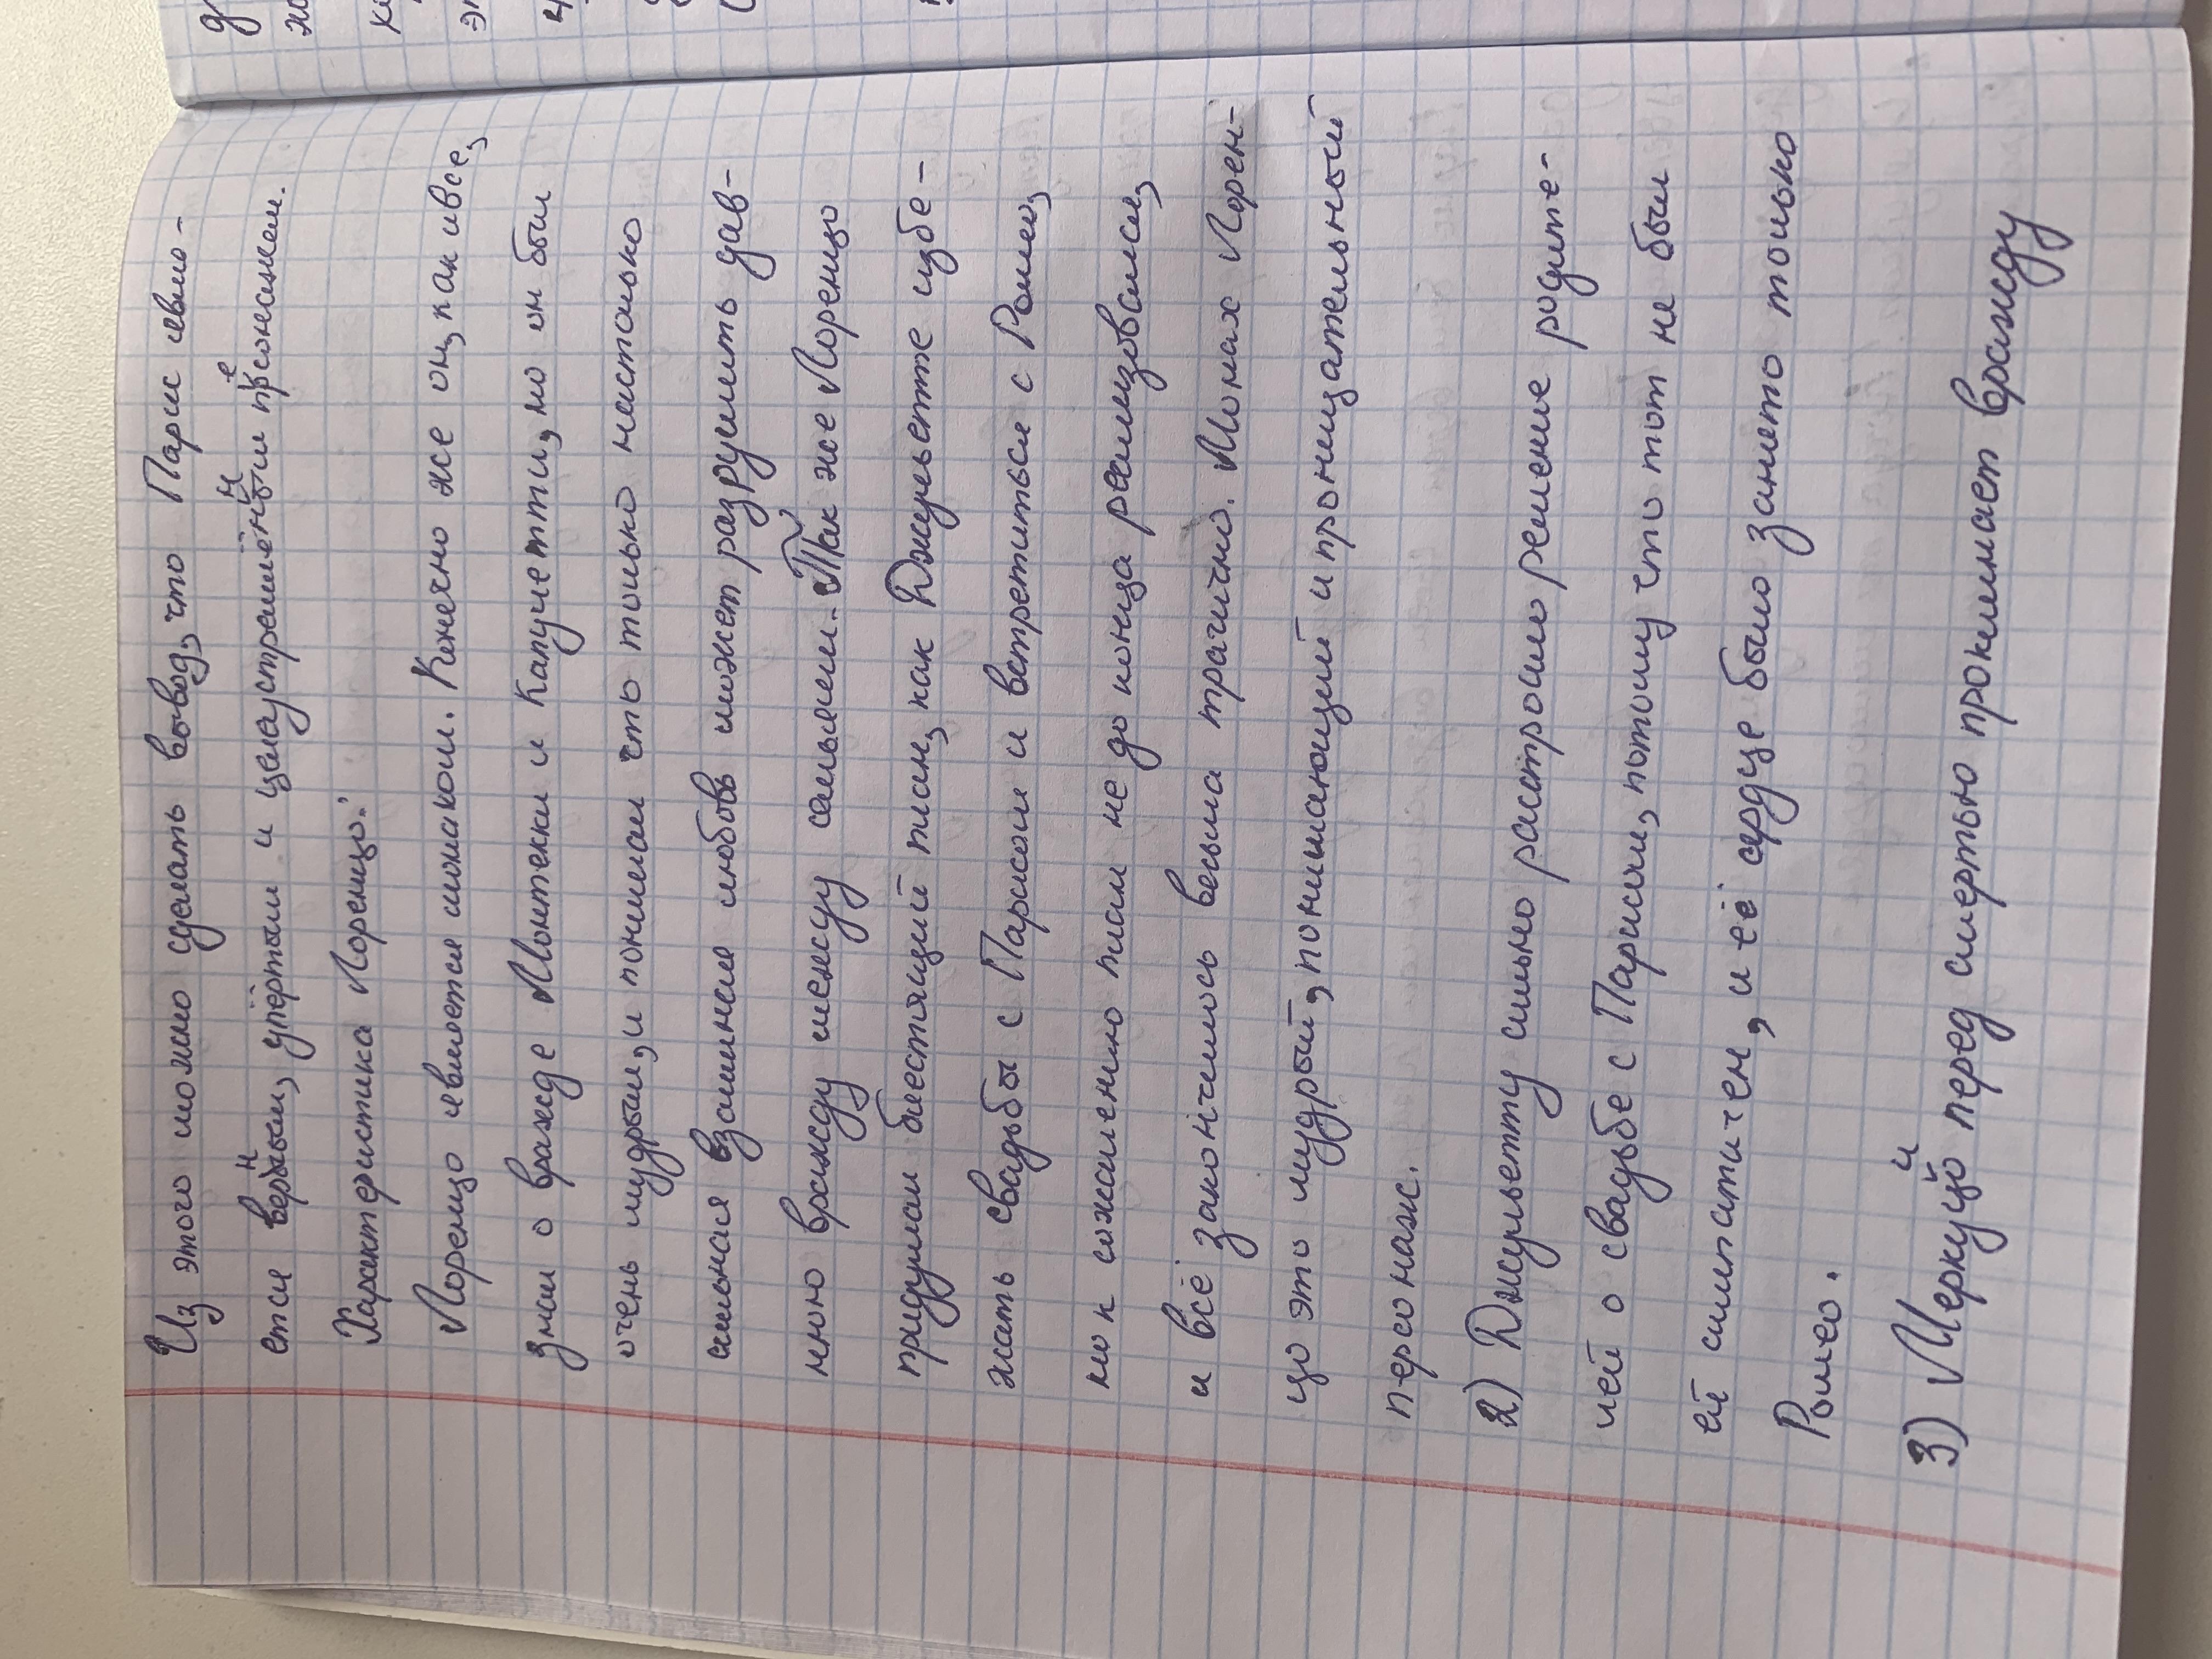 Из этого можно сделать вывод, что Парис явля-
ется верным, упёртым и целеустремлённым персонажем.
Характеристика Лоренцо:
Лоренцо является монахом. Кнечно же он, как и все,
знал о вражде Монтекки и Капулетти, но он был
очень мудрым, и понимал что только настолько
сильная взаимная любовь может разрушить дав-
нюю вражду между семьями. Так же Лоренцо
придумал блестящий план, как Джульетте избе-
жать свадьбы с Парисом и встретиться с Ромео,
но к сожалению план не до конца реализовался,
и всё закончилось весьма трагично. Монах Лорен-
цо это мудрый, понимающий и проницательный
персонаж.
2) Джульетту сильно расстроило решение родите-
лей о свадьбе с Парисом, потому что тот не был
ей симпатичен, и её сердце было занято только
Ромео.
3) Меркуцио перед смертью проклинает вражду